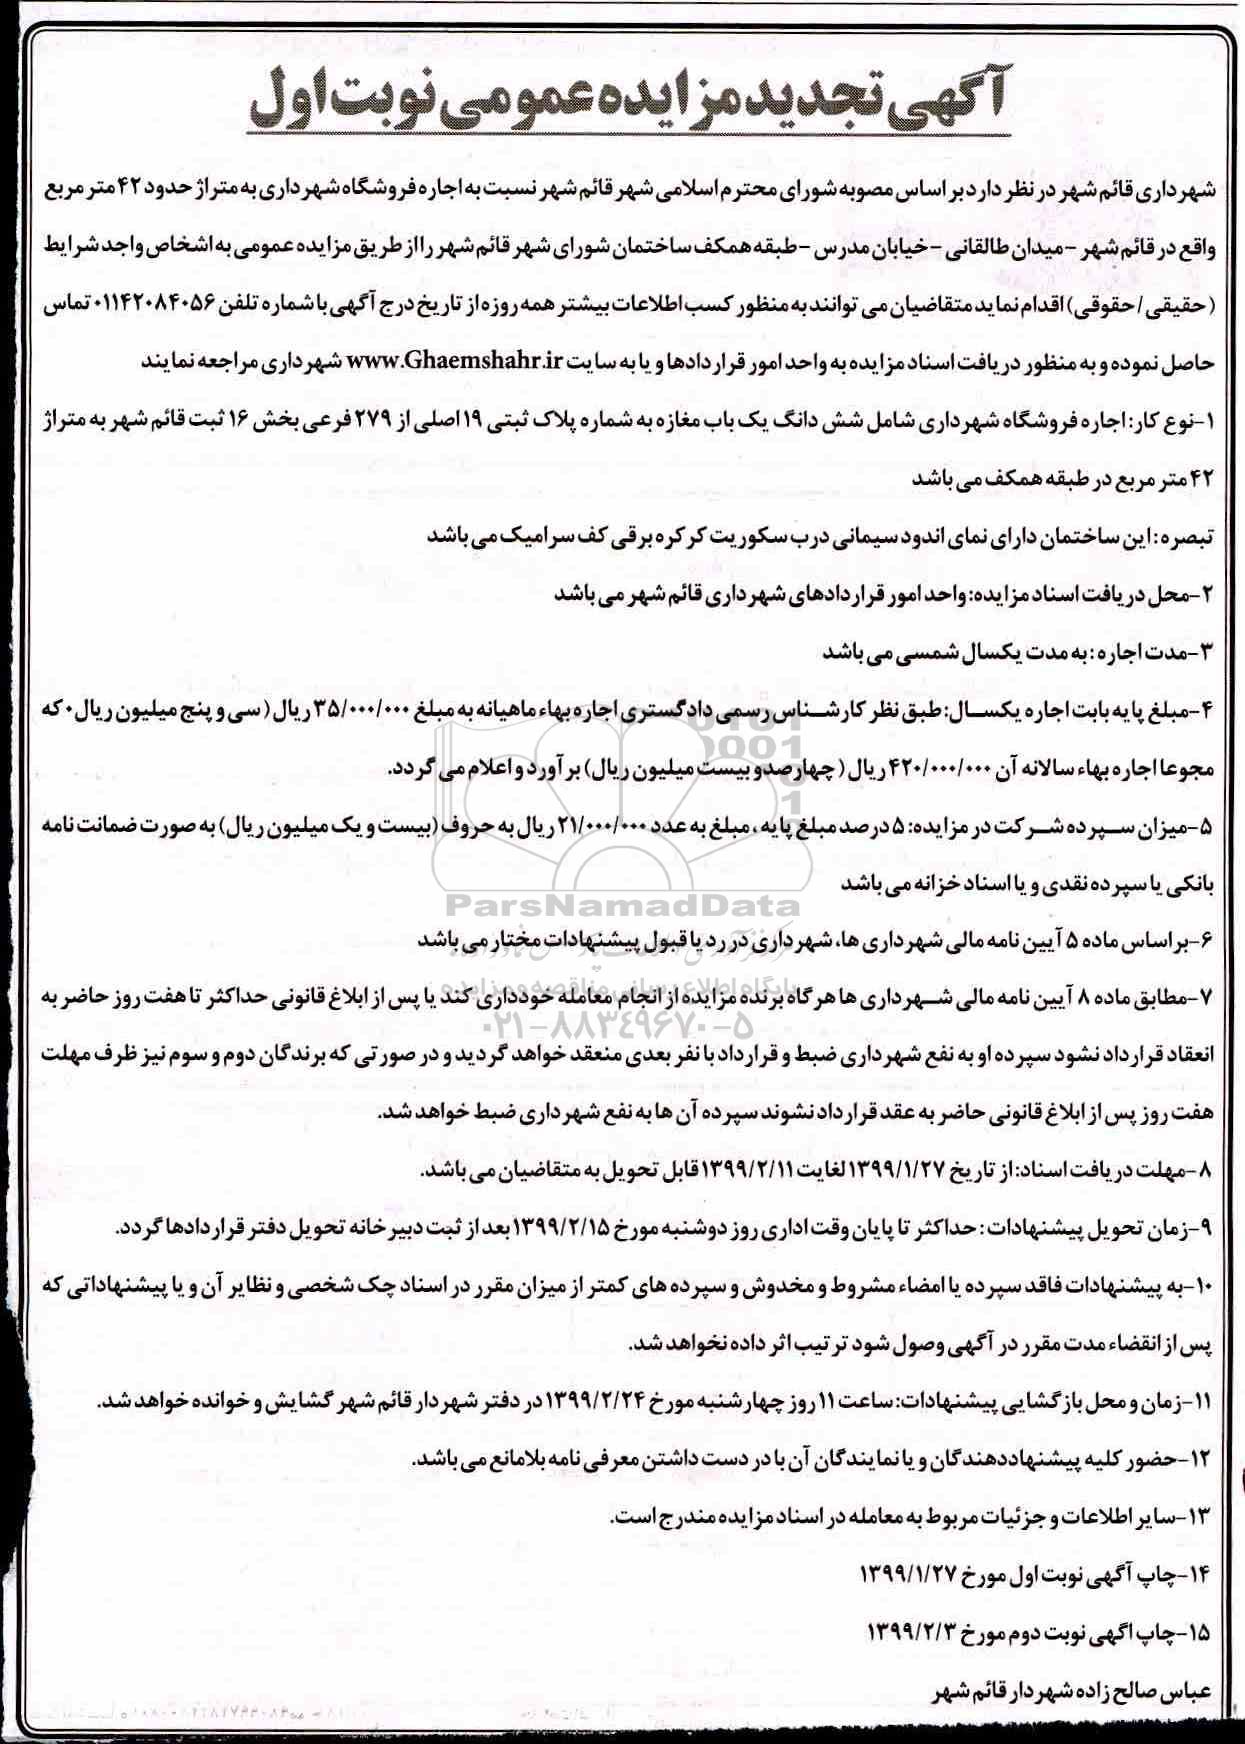 آگهی تجدید مزایده عمومی نوبت اول
شهرداری قائم شهر در نظر دارد بر اساس مصوبه شورای محترم اسلامی شهر قائم شهر نسبت به اجاره فروشگاه شهرداری به متراژ حدود ۴۲ متر مربع
واقع در قائم شهر -میدان طالقانی -خیابان مدرس -طبقه همکف ساختمان شورای شهر قائم شهر را از طریق مزایده عمومی به اشخاص واجد شرایط
(حقیقی / حقوقی) اقدام نماید متقاضیان می توانند به منظور کسب اطلاعات بیشتر همه روزه از تاریخ درج آگهی با شماره تلفن ۰۱۱۴۲۰۸۴۰۵۶ تماس
حاصل نموده و به منظور دریافت اسناد مزایده به واحد امور قراردادها و یا به سایت www.Ghaemshahr.ir شهرداری مراجعه نمایند
۱-نوع کار: اجاره فروشگاه شهرداری شامل شش دانگ یک باب مغازه به شماره پلاک ثبتی ۱۹ اصلی از ۲۷۹ فرعی بخش ۱۶ ثبت قائم شهر به متراژ
۴۲ متر مربع در طبقه همکف می باشد
تبصره: این ساختمان دارای نمای اندود سیمانی درب سکوریت کرکره برقی کف سرامیک می باشد
۲-محل دریافت اسناد مزایده: واحد امور قراردادهای شهرداری قائم شهر می باشد
۳-مدت اجاره: به مدت یکسال شمسی می باشد
۴-مبلغ پایه بابت اجاره یکسال: طبق نظر کارشناس رسمی دادگستری اجاره بهاء ماهیانه به مبلغ ۳۵/۰۰۰/۰۰۰ ریال (سی و پنج میلیون ریال۰ که
مجوعا اجاره بهاء سالانه آن ۴۲۰/۰۰۰/۰۰۰ ریال (چهارصدو بیست میلیون ریال) برآورد و اعلام می گردد.
۵-میزان سپرده شرکت در مزایده: ۵ درصد مبلغ پایه، مبلغ به عدد ۲۱/۰۰۰/۰۰۰ ریال به حروف (بیست و یک میلیون ریال) به صورت ضمانت نامه
بانکی یا سپرده نقدی و یا اسناد خزانه می باشد
ParsNamadData
۶-براساس ماده ۵ آیین نامه مالی شهرداری ها، شهرداری در رد یا قبول پیشنهادات مختار می باشد
پایگاه اطلاع رسانی مناقصه و مزایده
۷-مطابق ماده ۸ آیین نامه مالی شهرداری ها هرگاه برنده مزایده از انجام معامله خودداری کند یا پس از ابلاغ قانونی حداکثر تا هفت روز حاضر به
۰۲۱-۸۸۳۴۹۶۷۰-۵
انعقاد قرارداد نشود سپرده او به نفع شهرداری ضبط و قرارداد با نفر بعدی منعقد خواهد گردید و در صورتی که برندگان دوم و سوم نیز ظرف مهلت
هفت روز پس از ابلاغ قانونی حاضر به عقد قرارداد نشوند سپرده آن ها به نفع شهرداری ضبط خواهد شد.
۸-مهلت دریافت اسناد: از تاریخ ۱۳۹۹/۱/۲۷ لغایت ۱۳۹۹/۲/۱۱ قابل تحویل به متقاضیان می باشد.
۹-زمان تحویل پیشنهادات: حداکثر تا پایان وقت اداری روز دوشنبه مورخ ۱۳۹۹/۲/۱۵ بعد از ثبت دبیرخانه تحویل دفتر قراردادها گردد.
۱۰-به پیشنهادات فاقد سپرده یا امضاء مشروط و مخدوش و سپرده های کمتر از میزان مقرر در اسناد چک شخصی و نظایر آن و یا پیشنهاداتی که
پس از انقضاء مدت مقرر در آگهی وصول شود ترتیب اثر داده نخواهد شد.
۱۱-زمان و محل بازگشایی پیشنهادات: ساعت ۱۱ روز چهارشنبه مورخ ۱۳۹۹/۲/۲۴ در دفتر شهردار قائم شهر گشایش و خوانده خواهد شد.
۱۲-حضور کلیه پیشنهاددهندگان و یا نمایندگان آن با در دست داشتن معرفی نامه بلامانع می باشد.
۱۳-سایر اطلاعات و جزئیات مربوط به معامله در اسناد مزایده مندرج است.
۱۴-چاپ آگهی نوبت اول مورخ ۱۳۹۹/۱/۲۷
۱۵-چاپ اگهی نوبت دوم مورخ ۱۳۹۹/۲/۳
عباس صالح زاده شهردار قائم شهر